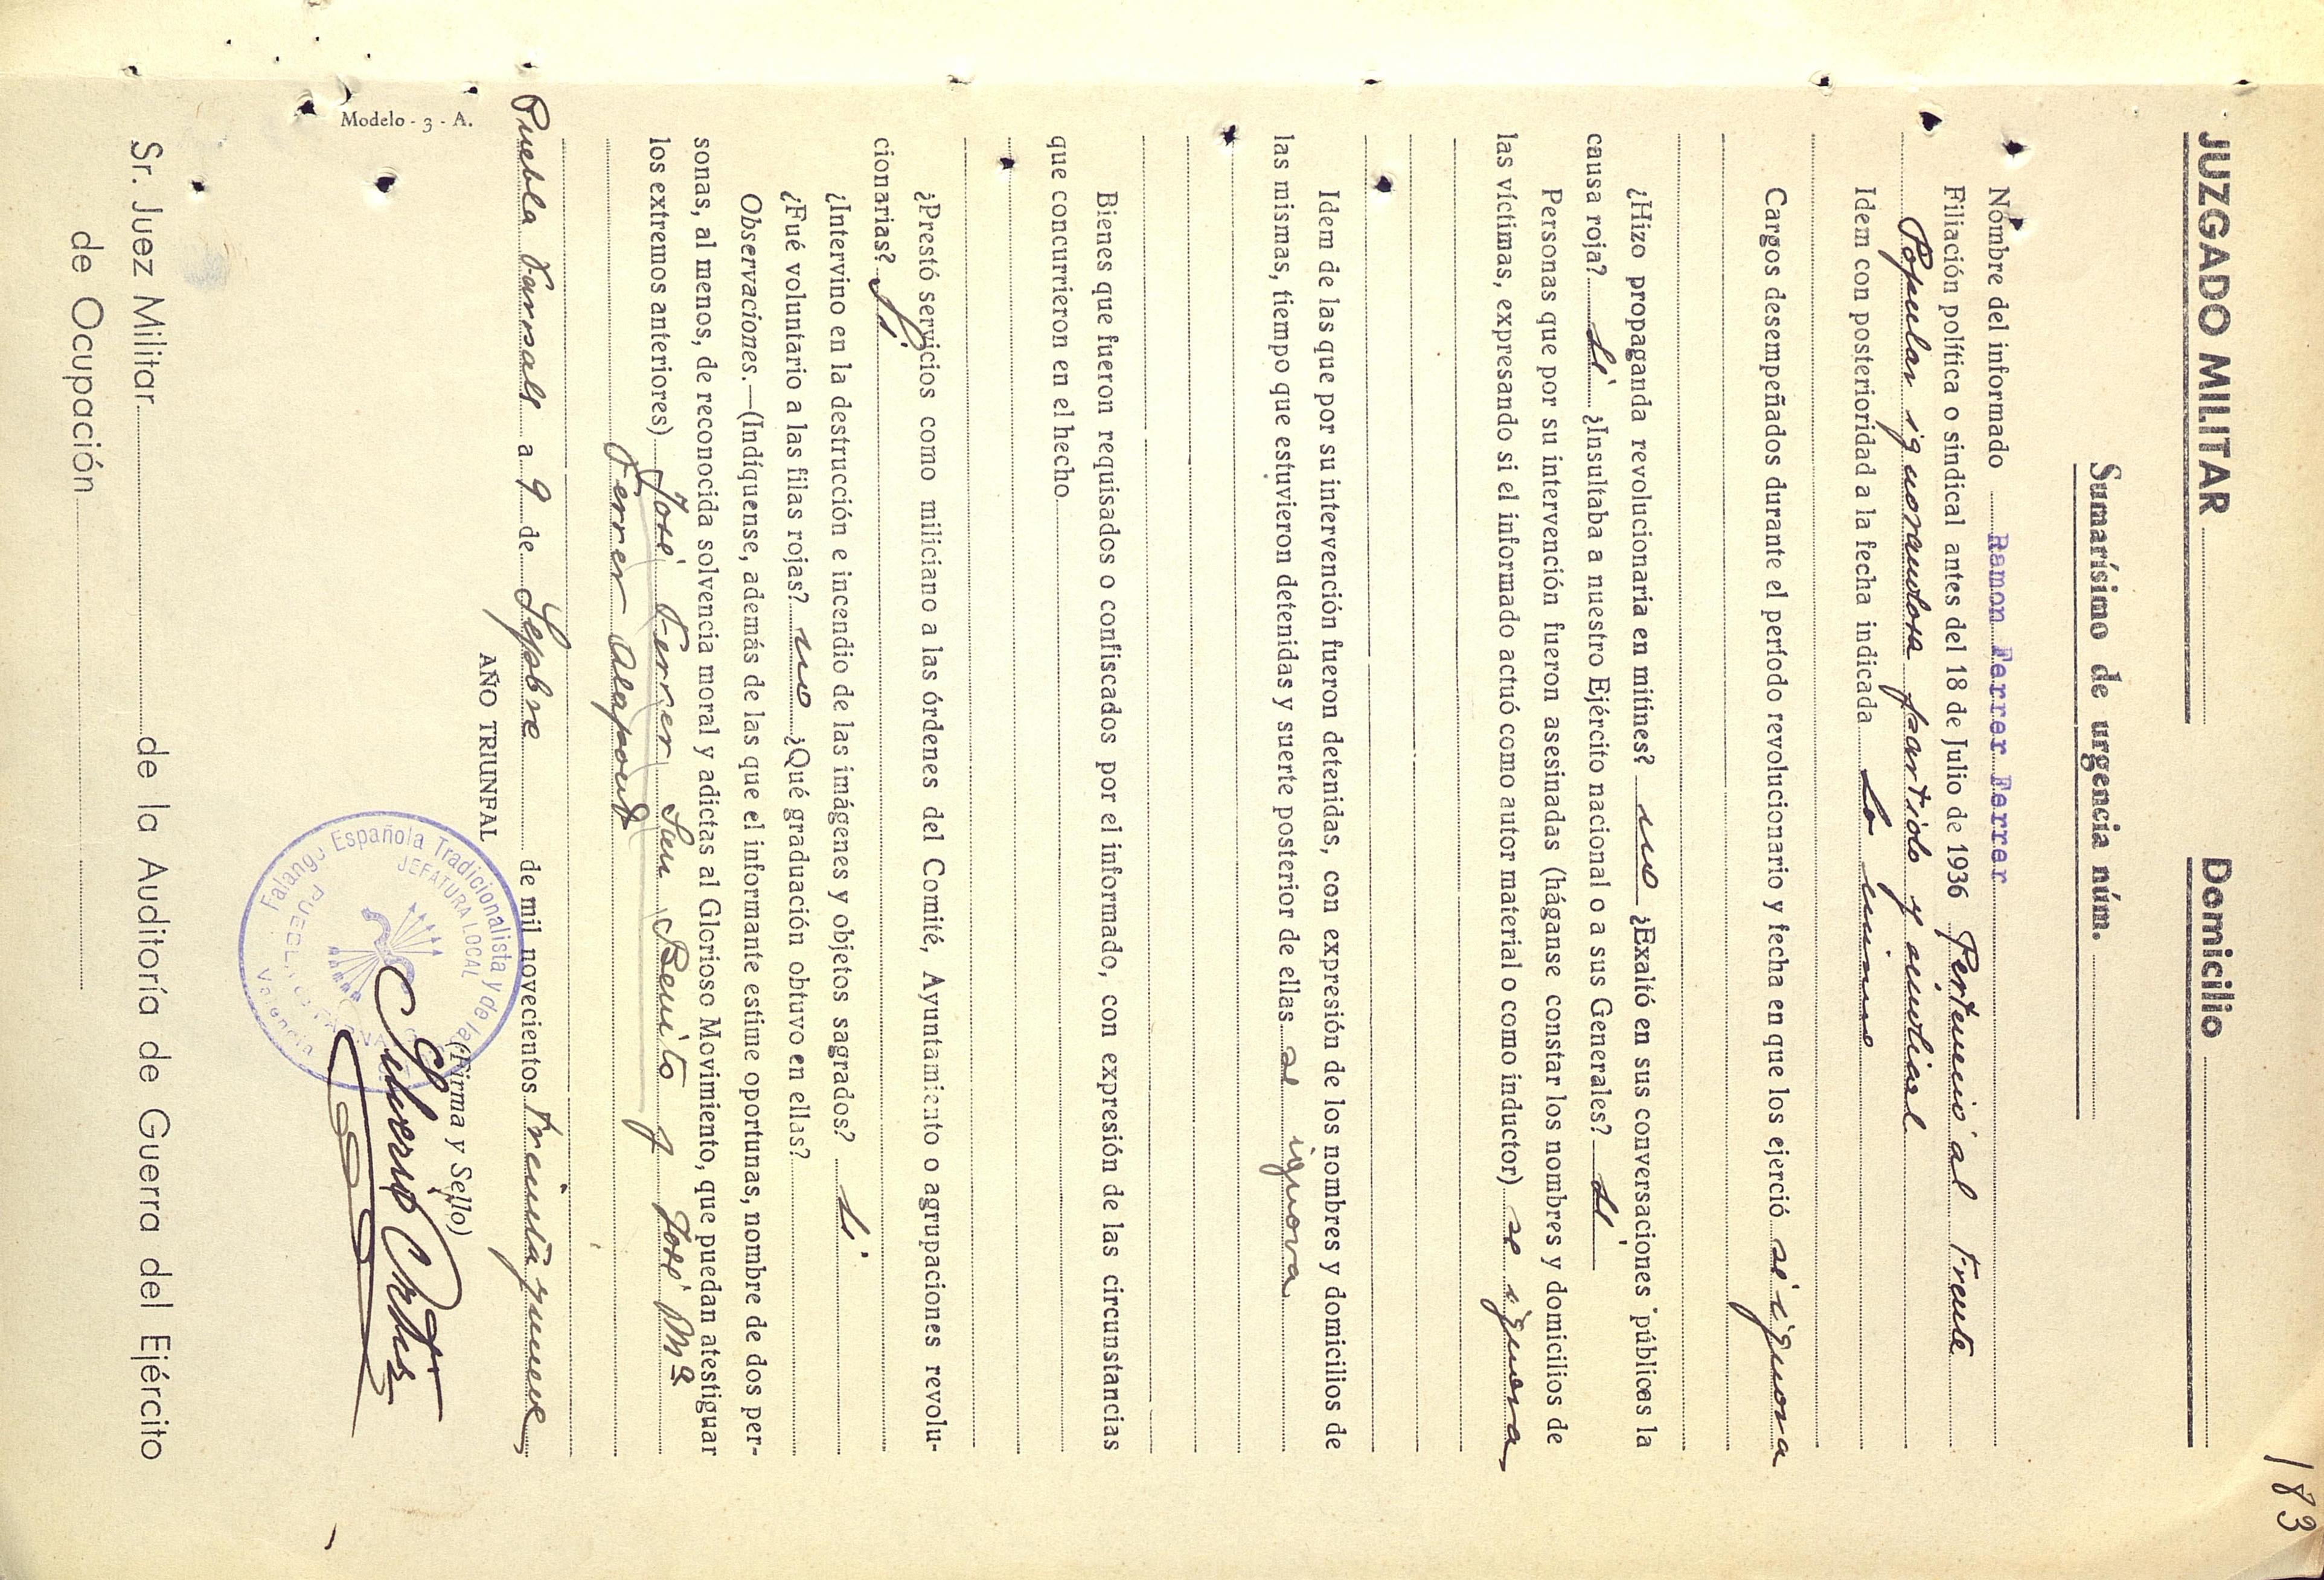 183
JUZGADO MILITAR Domicilio
Sumarísimo de urgencia núm.
Nombre del informado Ramon Ferrer Ferrer
Filiación política o sindical antes del 18 de Julio de 1936 Perteneció al Frente
Popular ignorandose partido y sindical
Idem con posterioridad a la fecha indicada Lo mismo
Cargos desempeñados durante el período revolucionario y fecha en que los ejerció se ignora
¿Hizo propaganda revolucionaria en mitines? no ¿Exaltó en sus conversaciones públicas la
causa roja? Si ¿Insultaba a nuestro Ejército nacional o a sus Generales? Si
Personas que por su intervención fueron asesinadas (háganse constar los nombres y domicilios de
las víctimas, expresando si el informado actuó como autor material o como inductor) se ignora
Idem de las que por su intervención fueron detenidas, con expresión de los nombres y domicilios de
las mismas, tiempo que estuvieron detenidas y suerte posterior de ellas se ignora
Bienes que fueron requisados o confiscados por el informado, con expresión de las circunstancias
que concurrieron en el hecho
¿Prestó servicios como miliciano a las órdenes del Comité, Ayuntamiento o agrupaciones revolu-
cionarias? Si
¿Intervino en la destrucción e incendio de las imágenes y objetos sagrados? Si
¿Fué voluntario a las filas rojas? no ¿Qué graduación obtuvo en ellas?
Observaciones.—(Indíquense, además de las que el informante estime oportunas, nombre de dos per-
sonas, al menos, de reconocida solvencia moral y adictas al Glorioso Movimiento, que puedan atestiguar
los extremos anteriores) José Ferrer San Benito y José Mª
Ferrer Alapont
Puebla Farnals a 9 de Sepbre de mil novecientos treinta y nueve
AÑO TRIUNFAL
(Firma y Sello)
Falange Española Tradicionalista y de las
JEFATURA LOCAL
Valencia
Modelo - 3 - A.
Sr. Juez Militar de la Auditoría de Guerra del Ejército
de Ocupación